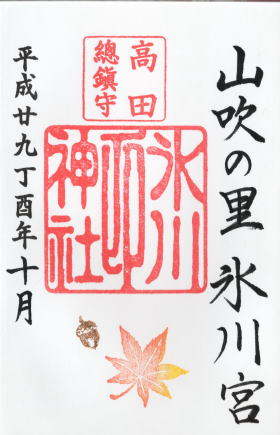 山吹の里 氷川宮
高田
總鎮守
氷川
神社
平成廿九丁酉年十月